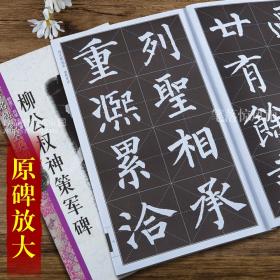 柳公权神策军碑
原碑放大
廿有餘
列聖相承
重熙累洽